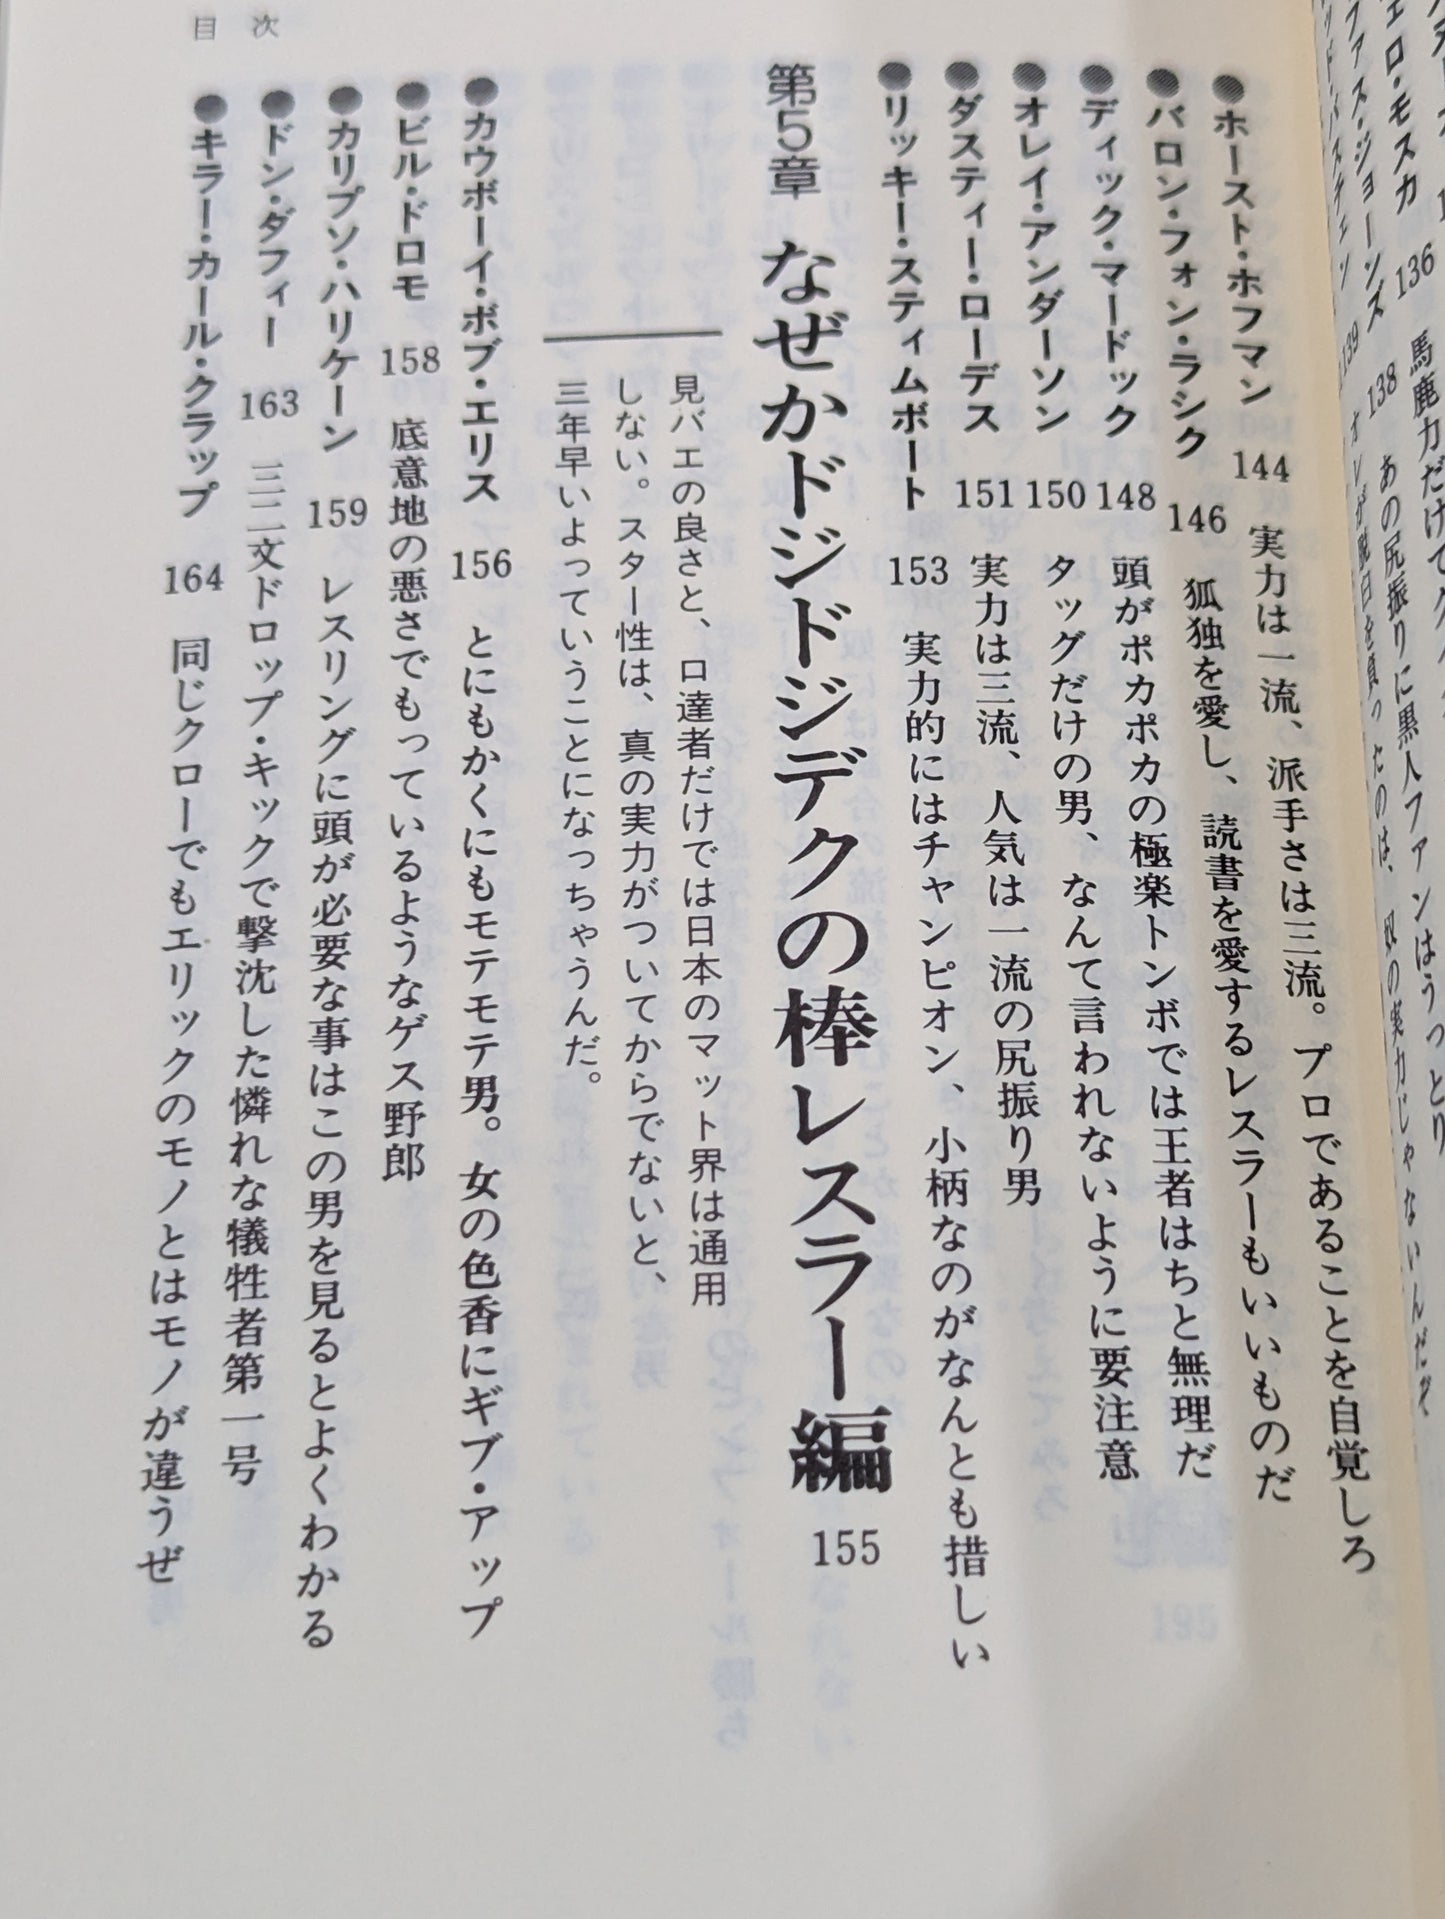 目次
エロ・モスカ 136 馬鹿力だけで
ファス・ジョーンズ 138 あの尻振りに黒人ファンはうっとり
139 オレが脱臼を負ったのは、奴の実力じゃないんだぜ
●ホースト・ホフマン 144 実力は一流、派手さは三流。プロであることを自覚しろ
●バロン・フォン・ラシク 146 狐独を愛し、読書を愛するレスラーもいいものだ
●ディック・マードック 148 頭がポカポカの極楽トンボでは王者はちと無理だ
●オレイ・アンダーソン 150 タッグだけの男、なんて言われないように要注意
●ダスティー・ローデス 151 実力は三流、人気は一流の尻振り男
●リッキー・スティムボート 153 実力的にはチャンピオン、小柄なのがなんとも措しい
第5章 なぜかドジドジデクの棒レスラー編 155
見バエの良さと、口達者だけでは日本のマット界は通用
しない。スター性は、真の実力がついてからでないと、
三年早いよっていうことになっちゃうんだ。
●カウボーイ・ボブ・エリス 156 とにもかくにもモテモテ男。女の色香にギブ・アップ
●ビル・ドロモ 158 底意地の悪さでもっているようなゲス野郎
●カリプソ・ハリケーン 159 レスリングに頭が必要な事はこの男を見るとよくわかる
●ドン・ダフィー 163 三二文ドロップ・キックで撃沈した憐れな犠牲者第一号
●キラー・カール・クラップ 164 同じクローでもエリックのモノとはモノが違うぜ